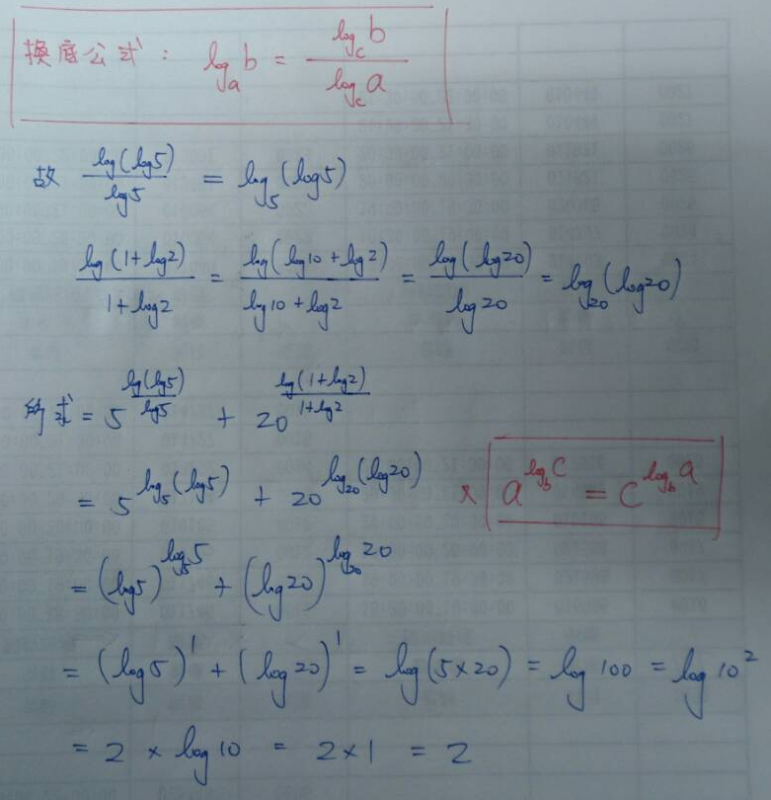 換底公式: log_a b = log_c b / log_c a
故 log(log5) / log5 = log_5 (log5)
log(1+log2) / 1+log2 = log(log10+log2) / log10+log2 = log(log20) / log20 = log_20 (log20)
所求 = 5^(log(log5)/log5) + 20^(log(1+log2)/1+log2)
= 5^(log_5 (log5)) + 20^(log_20 (log20)) * a^(log_b c) = c^(log_b a)
= (log5)^(log_5 5) + (log20)^(log_20 20)
= (log5)^1 + (log20)^1 = log(5×20) = log100 = log10^2
= 2 × log10 = 2×1 = 2